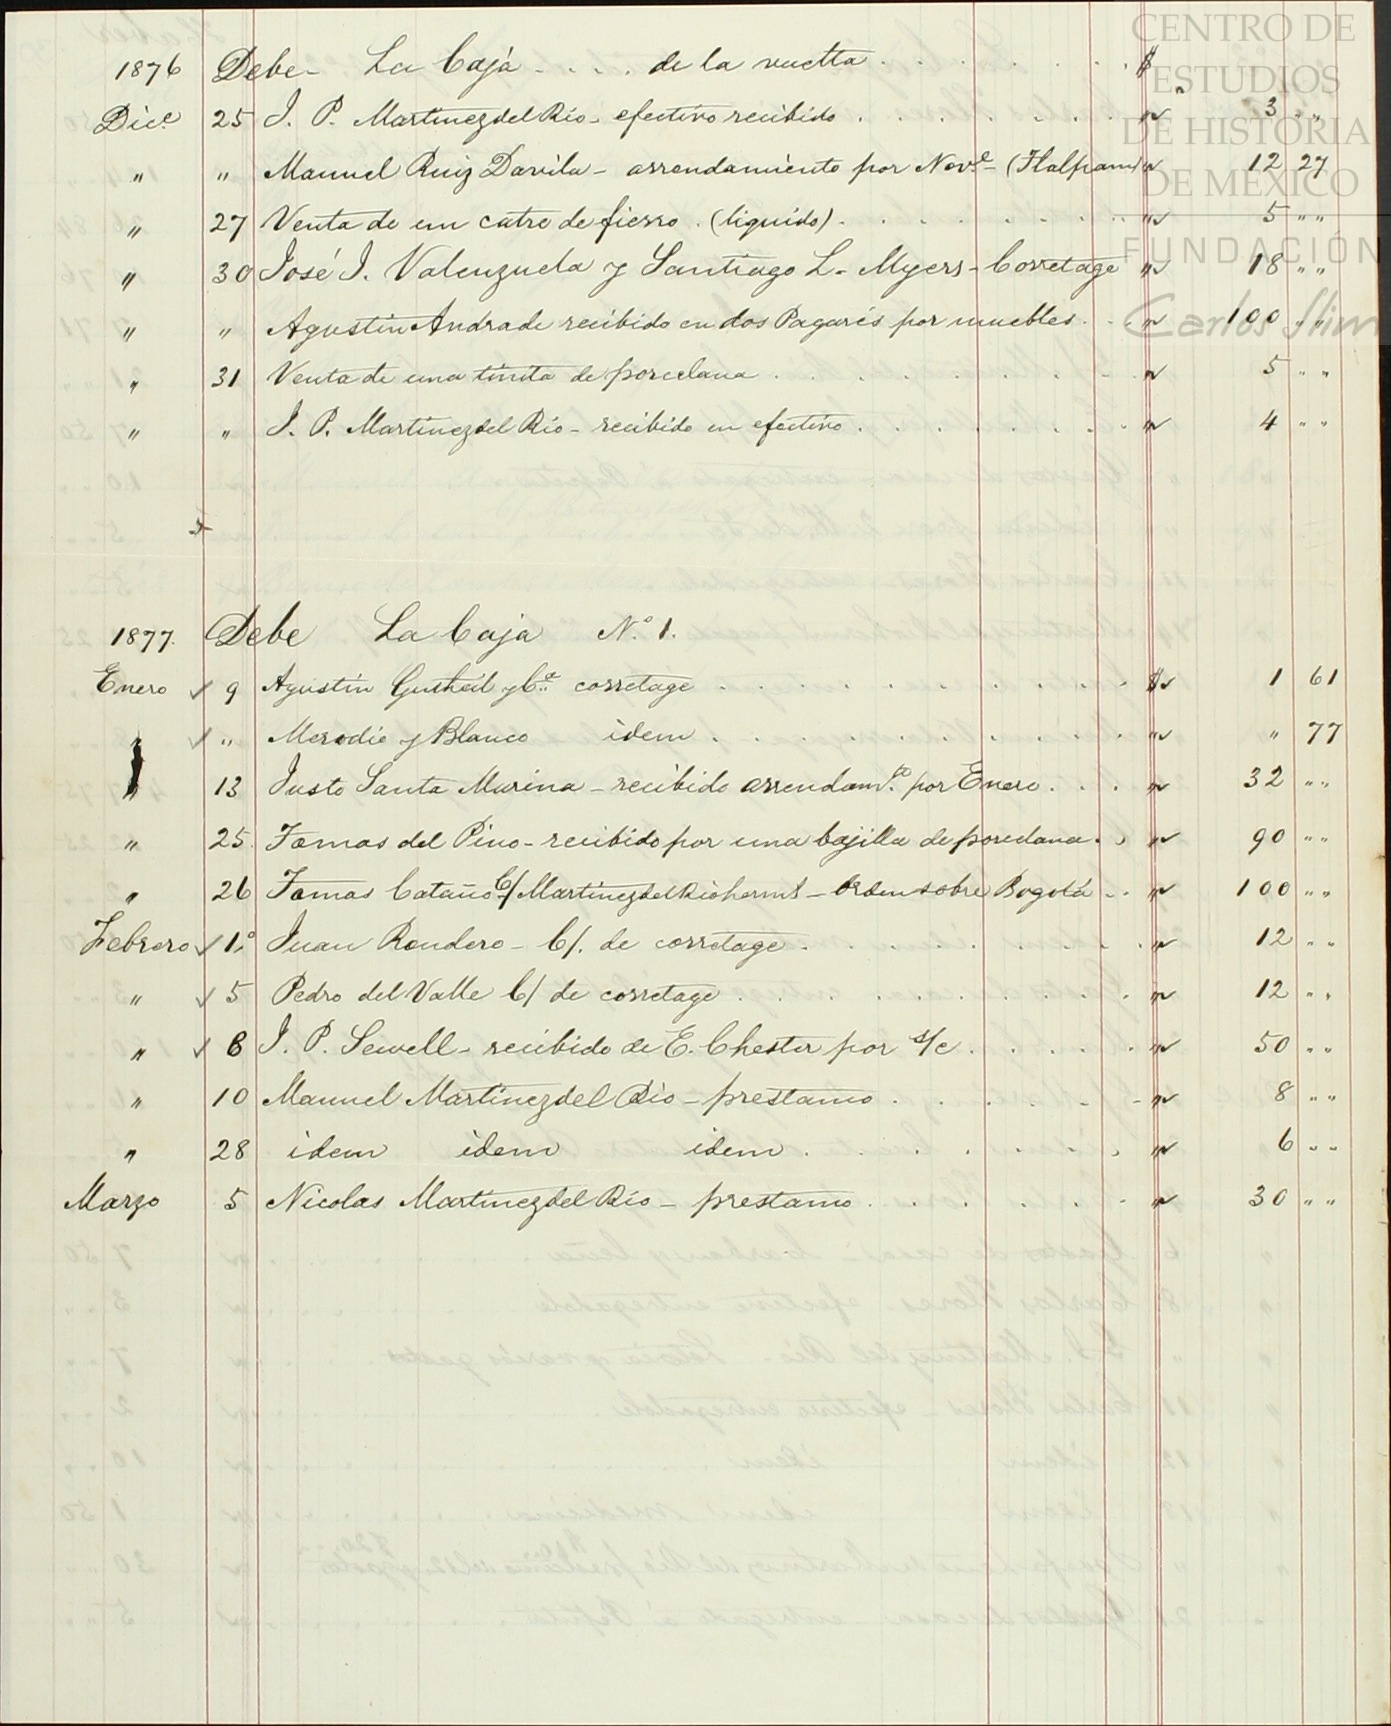 CENTRO DE
ESTUDIOS
DE HISTORIA
DE MÉXICO
FUNDACIÓN
Carlos Slim
1876 Debe - La Caja . . . . de la vuelta . . . . . . . $
Dice. 25 J. P. Martinez del Rio - efectivo recibido . . . . . . " 3 " "
" " Manuel Ruiz Davila - arrendamiento por Nove. - (Tlalpam) " 12 27
" 27 Venta de un catre de fierro . (liquido) . . . . . . . " 5 " "
" 30 José J. Valenzuela y Santiago L. Myers - Corretage " 18 " "
" " Agustin Andrade recibido en dos Pagarés por muebles . . " 100 " "
" 31 Venta de una tinita de porcelana . . . . . . . " 5 " "
" " J. P. Martinez del Rio - recibido en efectivo . . . . . . " 4 " "
1877. Debe La Caja N.º 1.
Enero ✓ 9 Agustin Gutheil y Ca. corretage . . . . . . . . $ 1 61
✓ " Merodio y Blanco idem . . . . . . . . " " 77
" 13 Justo Santa Marina - recibido arrendamto. por Enero . . . " 32 " "
" 25 Tomas del Pino - recibido por una bajilla de porcelana . . " 90 " "
" 26 Tomas Cataño C/ Martinez del Rio herms - Orden sobre Bogotá . . " 100 " "
Febrero ✓ 1.º Juan Rondero - C/. de corretage . . . . . . . " 12 " "
" ✓ 5 Pedro del Valle C/ de corretage . . . . . . . " 12 " "
" ✓ 8 J. P. Sewell - recibido de E. Chester por s/c . . . . . " 50 " "
" 10 Manuel Martinez del Rio - prestamo . . . . . . " 8 " "
" 28 idem idem idem . . . . . . " 6 " "
Marzo 5 Nicolas Martinez del Rio - prestamo . . . . . . " 30 " "